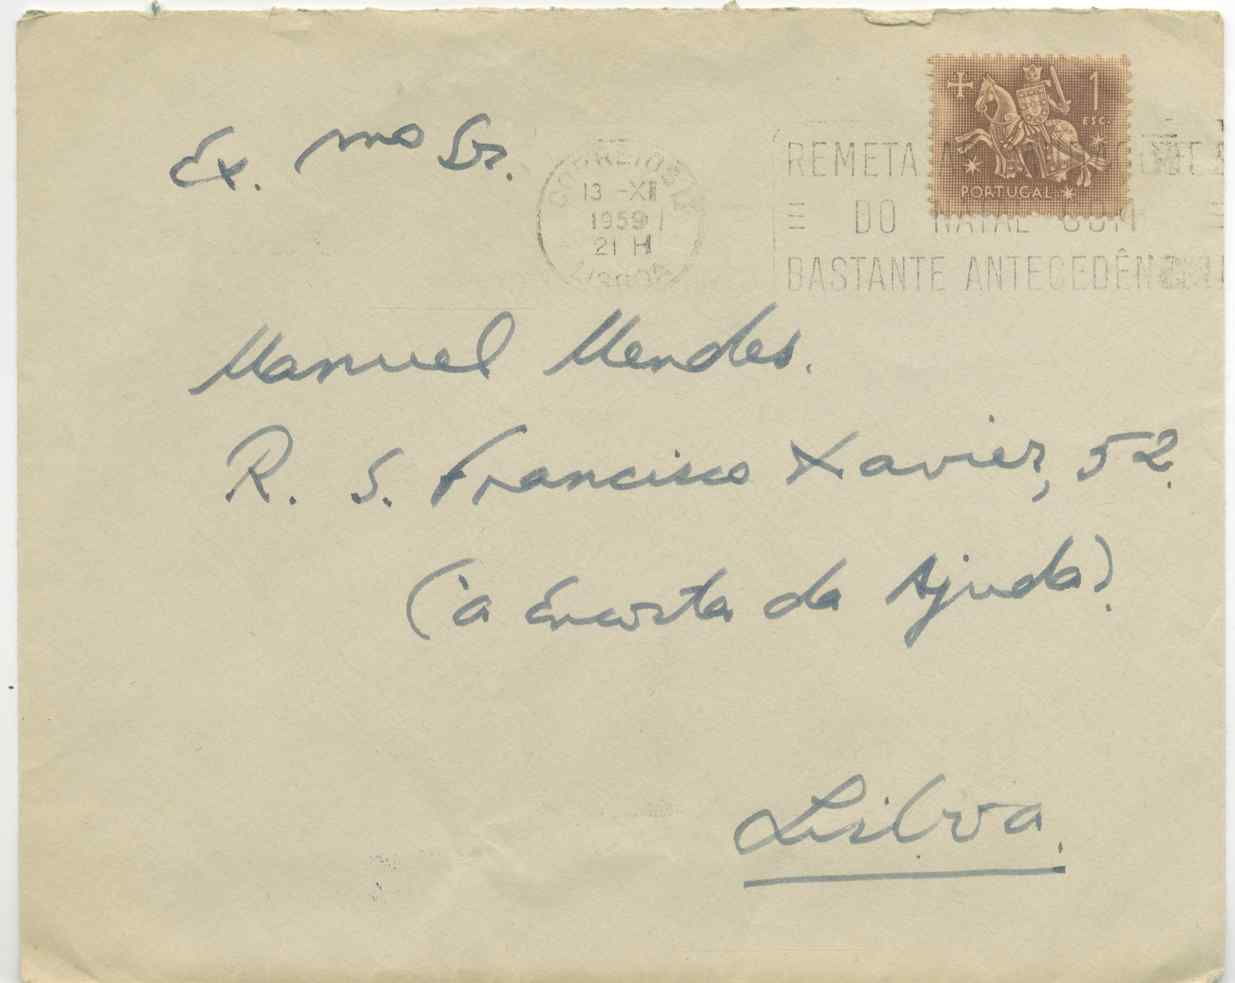 Ex. mo Sr.
CORREIOS
13 -XII
1959
21 H
LISBOA
1
ESC.
PORTUGAL
REMETA
DO NATAL COM
BASTANTE ANTECEDÊNCIA
Manuel Mendes.
R. S. Francisco Xavier, 52.
(à Encosta da Ajuda).
Lisboa.